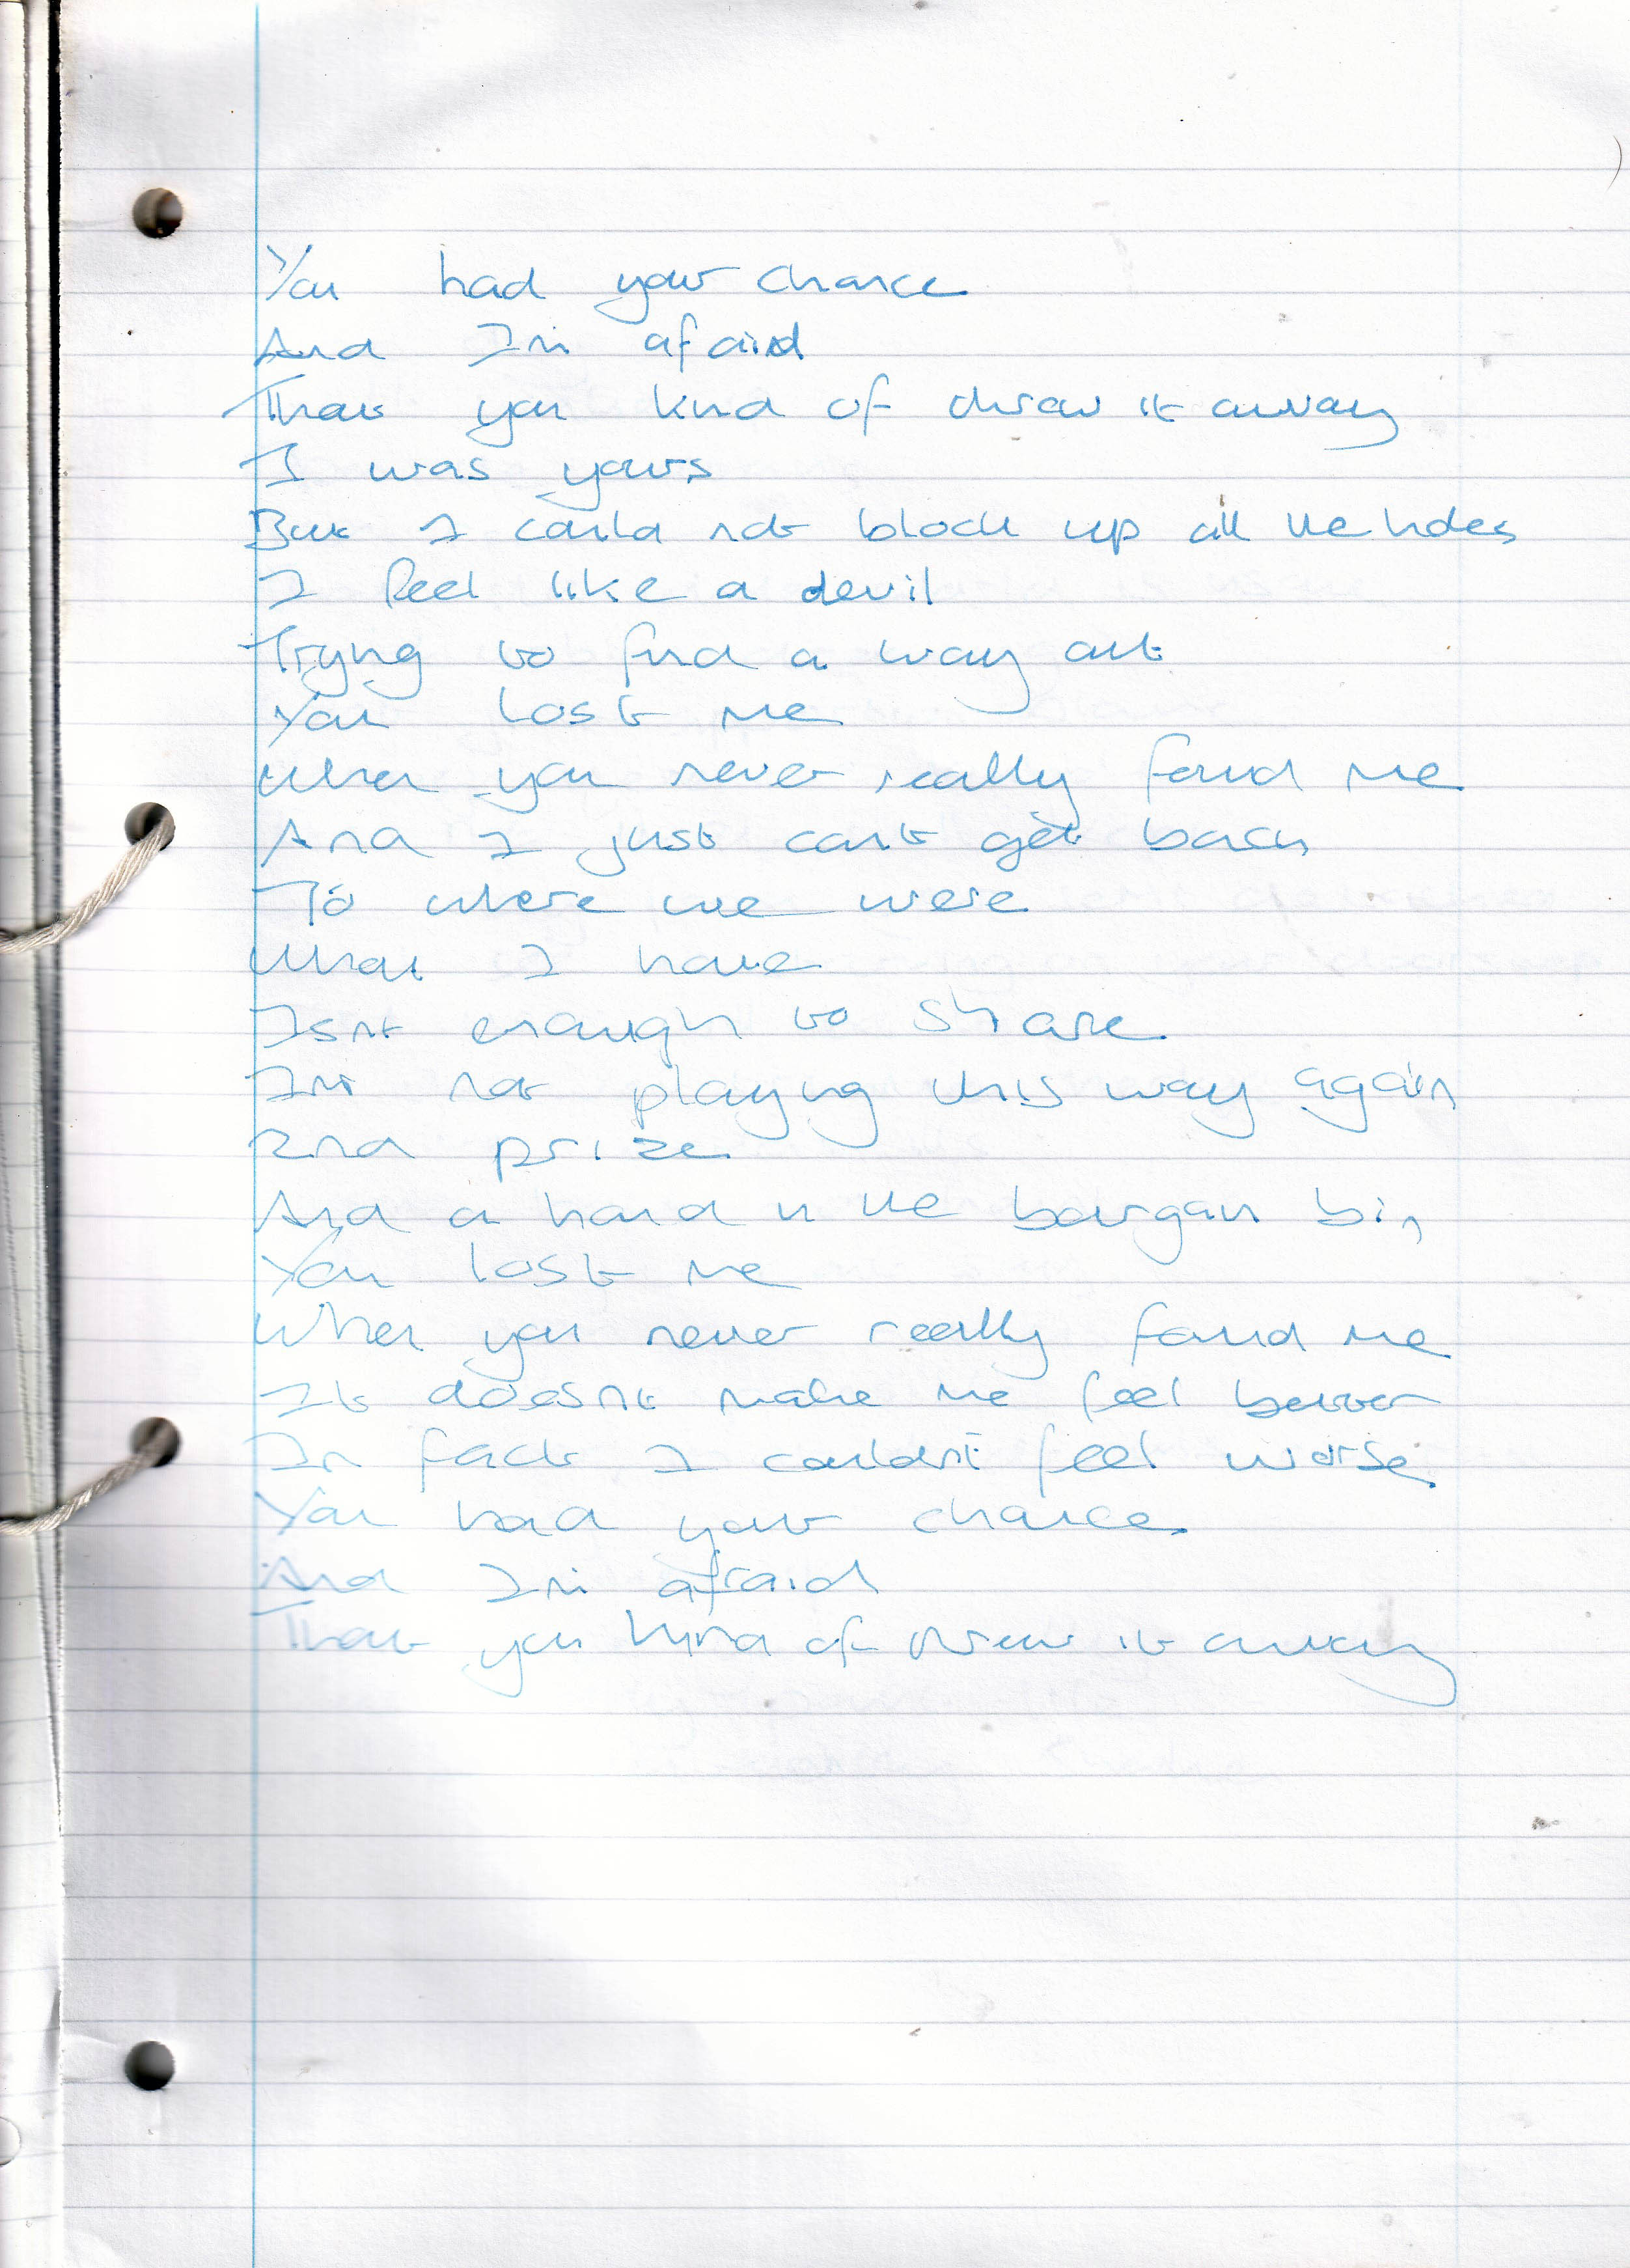 You had your chance
And I'm afaird
That you kind of threw it away
I was yours
But I could not block up all the holes
I feel like a devil
Trying to find a way out
You lost me
When you never really found me
And I just cant get back
To where we were
What I have
Isnt enough to share
I'm not playing this way again
2nd prize
And a hand in the bargain bin
You lost me
When you never really found me
It doesnt make me feel better
In fact I couldn't feel worse
You had your chance
And I'm afraid
That you kind of threw it away